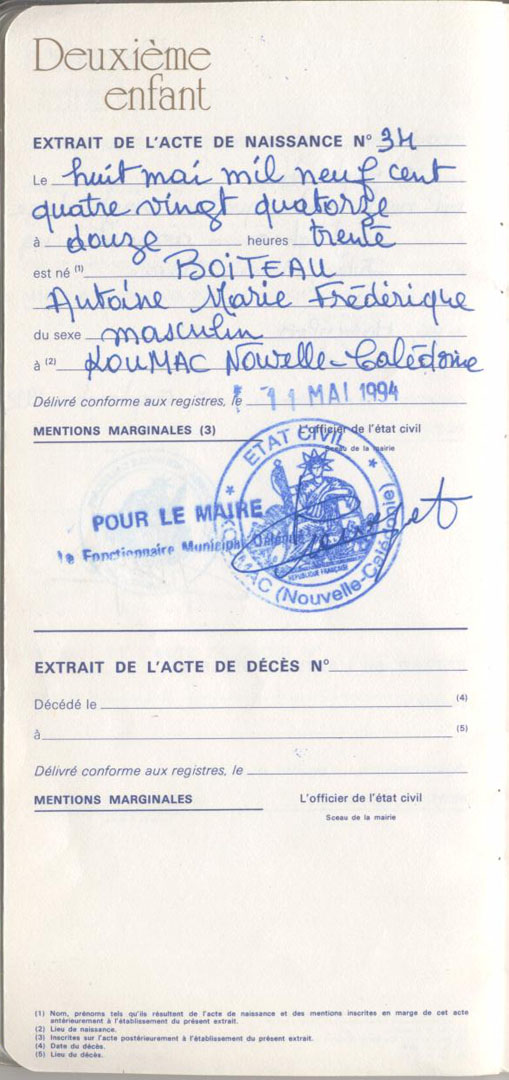 Deuxième
enfant
EXTRAIT DE L'ACTE DE NAISSANCE N° 34
Le huit mai mil neuf cent
quatre vingt quatorze
à douze heures trente
est né (1) BOITEAU
Antoine Marie Frédérique
du sexe masculin
à (2) KOUMAC Nouvelle-Calédonie
Délivré conforme aux registres, le 11 MAI 1994
MENTIONS MARGINALES (3) L'officier de l'état civil
Sceau de la mairie
ETAT CIVIL
POUR LE MAIRE
Le Fonctionnaire Municipal
REPUBLIQUE FRANÇAISE
MAC (Nouvelle-Calédonie)
EXTRAIT DE L'ACTE DE DÉCÈS N°
Décédé le (4)
à (5)
Délivré conforme aux registres, le
MENTIONS MARGINALES L'officier de l'état civil
Sceau de la mairie
(1) Nom, prénoms tels qu'ils résultent de l'acte de naissance et des mentions inscrites en marge de cet acte
antérieurement à l'établissement du présent extrait.
(2) Lieu de naissance.
(3) Inscrites sur l'acte postérieurement à l'établissement du présent extrait.
(4) Date du décès.
(5) Lieu du décès.